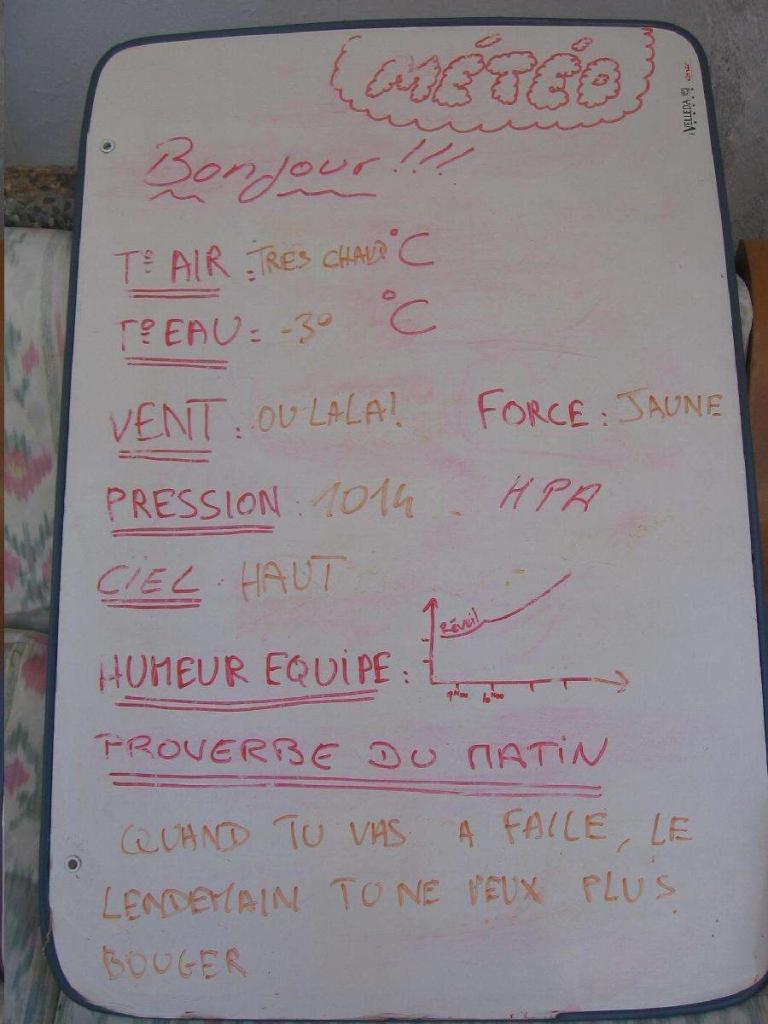 MÉTÉO
VELLEDA
Bonjour !!!
Tº AIR : TRES CHAUD °C
Tº EAU : -3° °C
VENT : OULALA! FORCE : JAUNE
PRESSION : 1014 HPA
CIEL : HAUT
Réveil
HUMEUR EQUIPE :
9H00 10H00
PROVERBE DU MATIN
QUAND TU VAS A FAILE, LE
LENDEMAIN TU NE PEUX PLUS
BOUGER